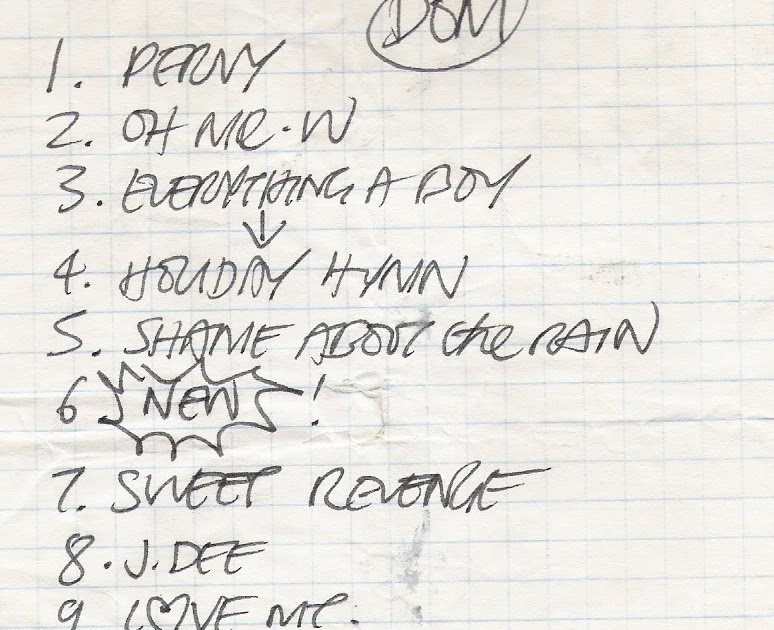 DOM
1. PERVY
2. OH MR. W
3. EVERYTHING A BOY
4. HOLIDAY HYMN
5. SHAME ABOUT the RAIN
6 NEW !
7. SWEET REVENGE
8. J. DEE
9 LOVE ME.